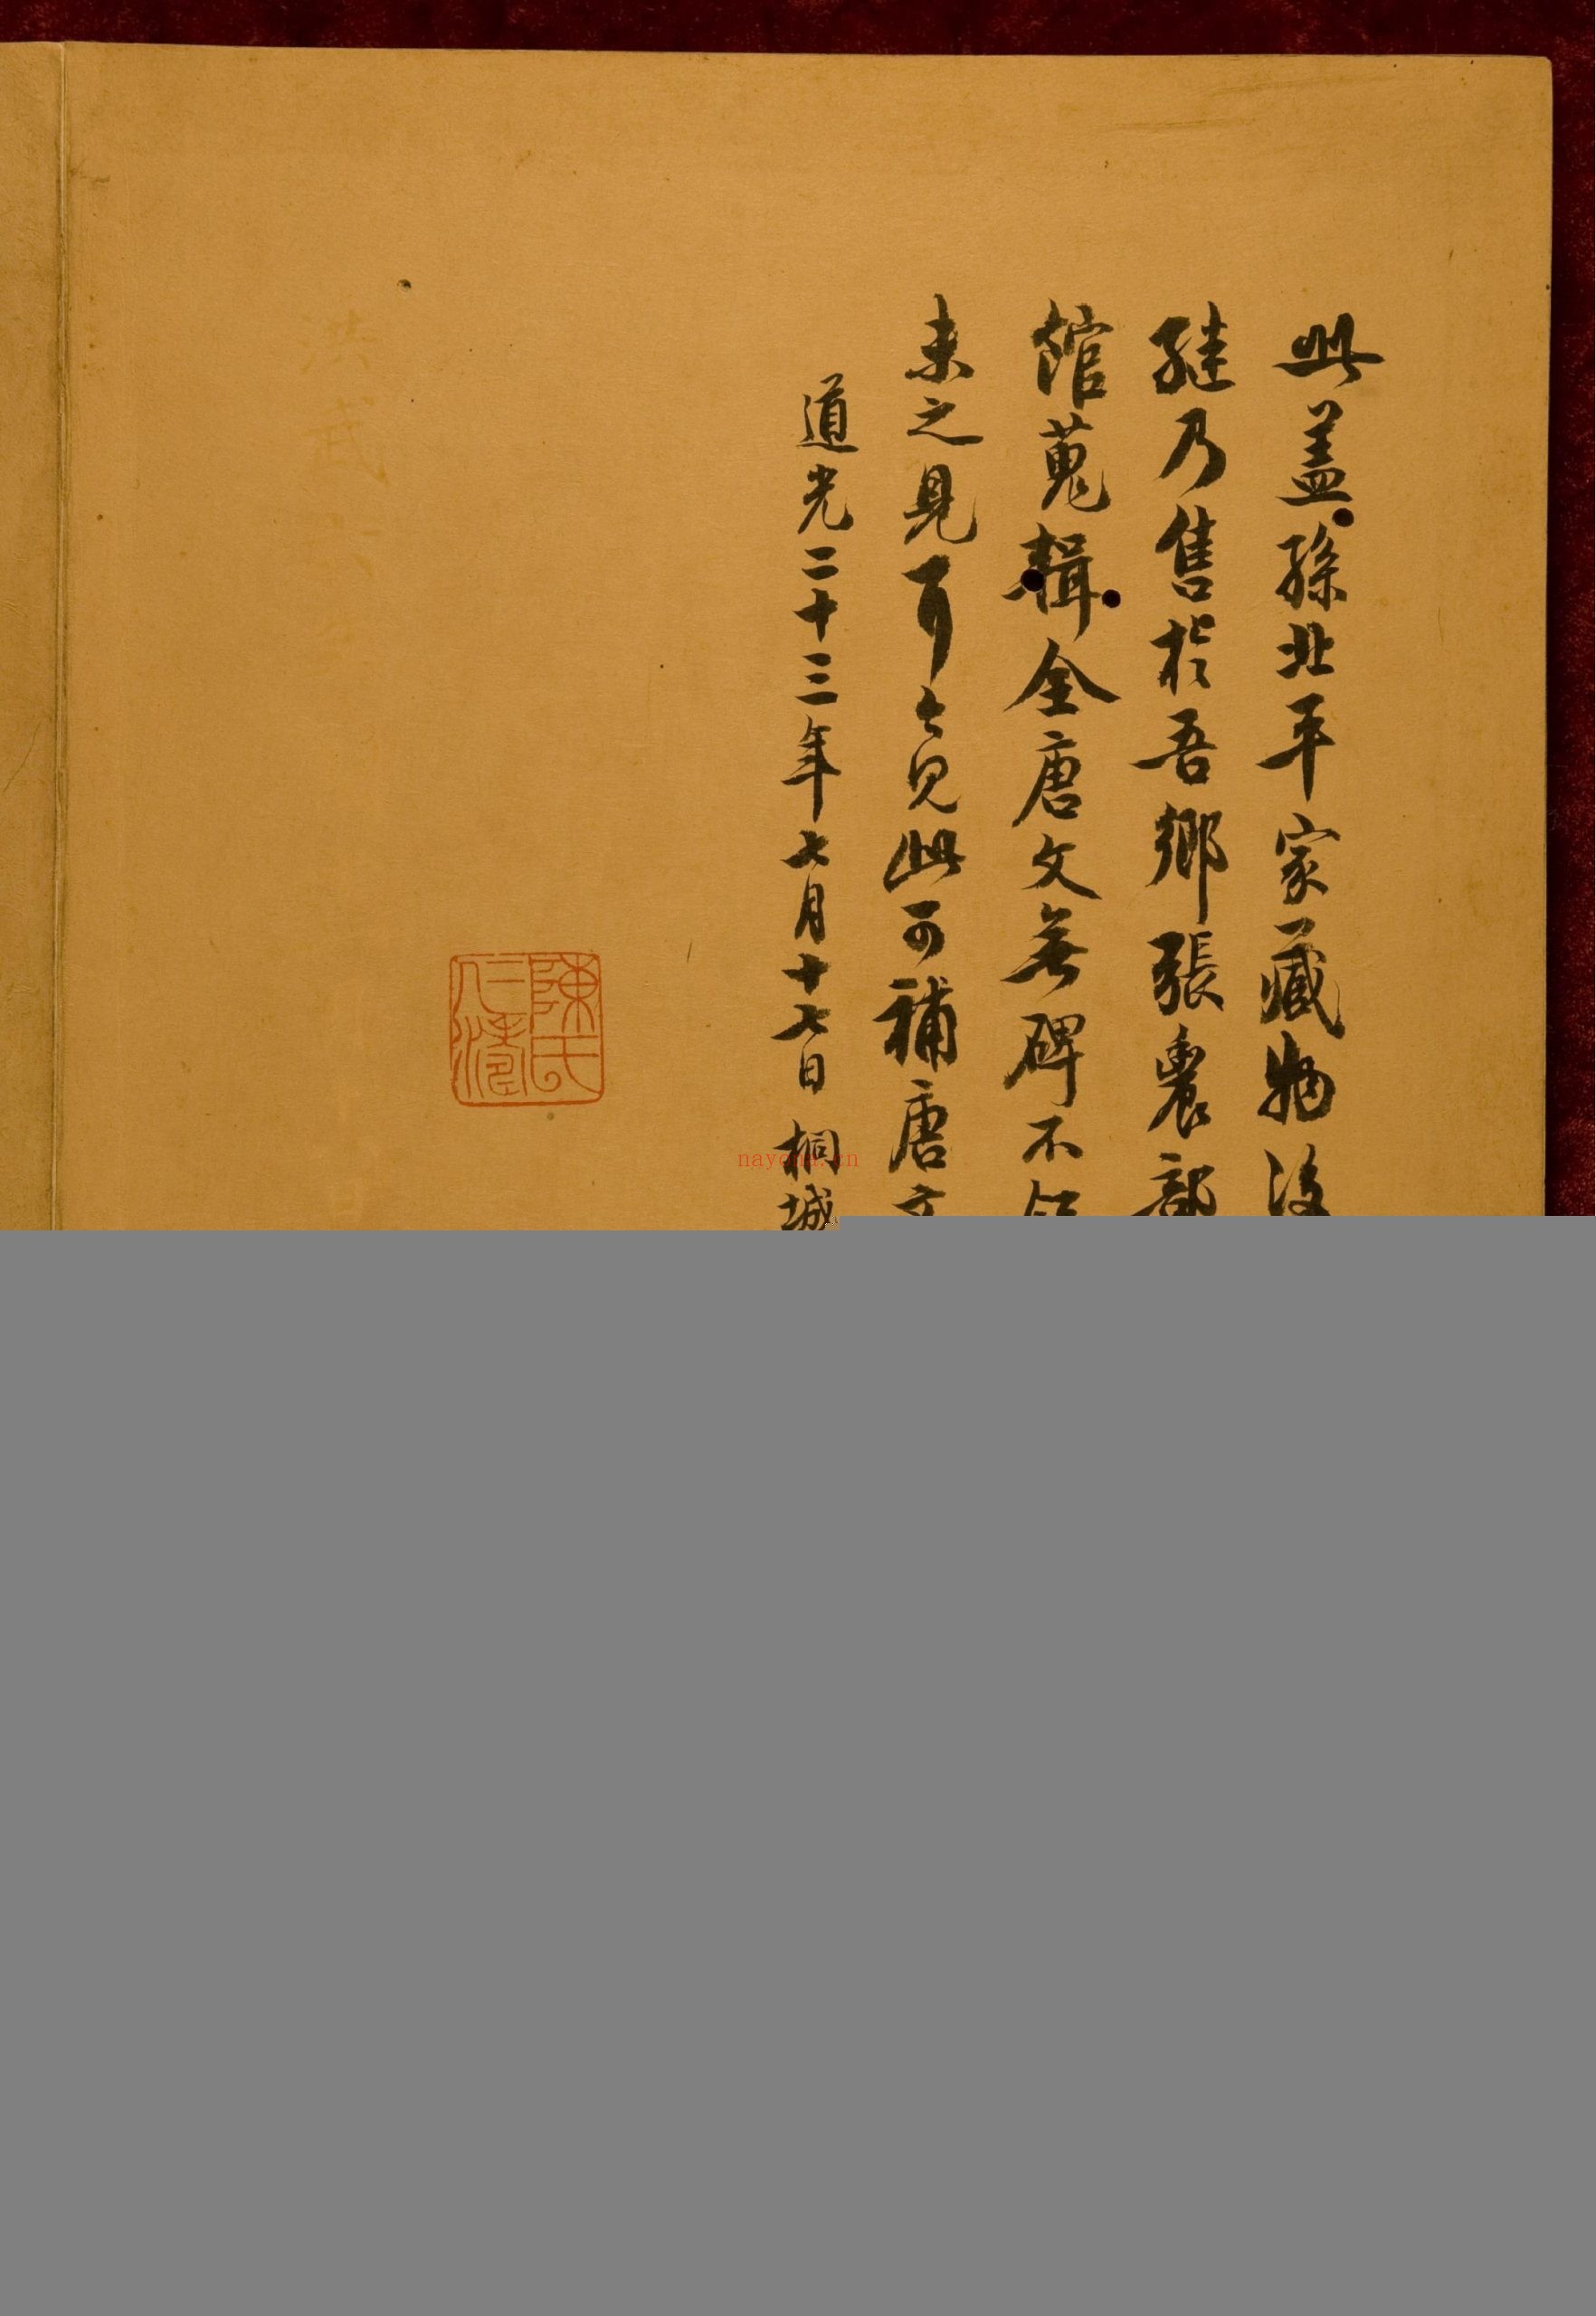 此蓋孫北平家藏物後
繼乃售於吾鄉張農部
館蒐輯全唐文無碑不
未之見耳今見此可補唐文
道光二十三年七月十七日桐城
陳氏
仁濤
nayona.cn